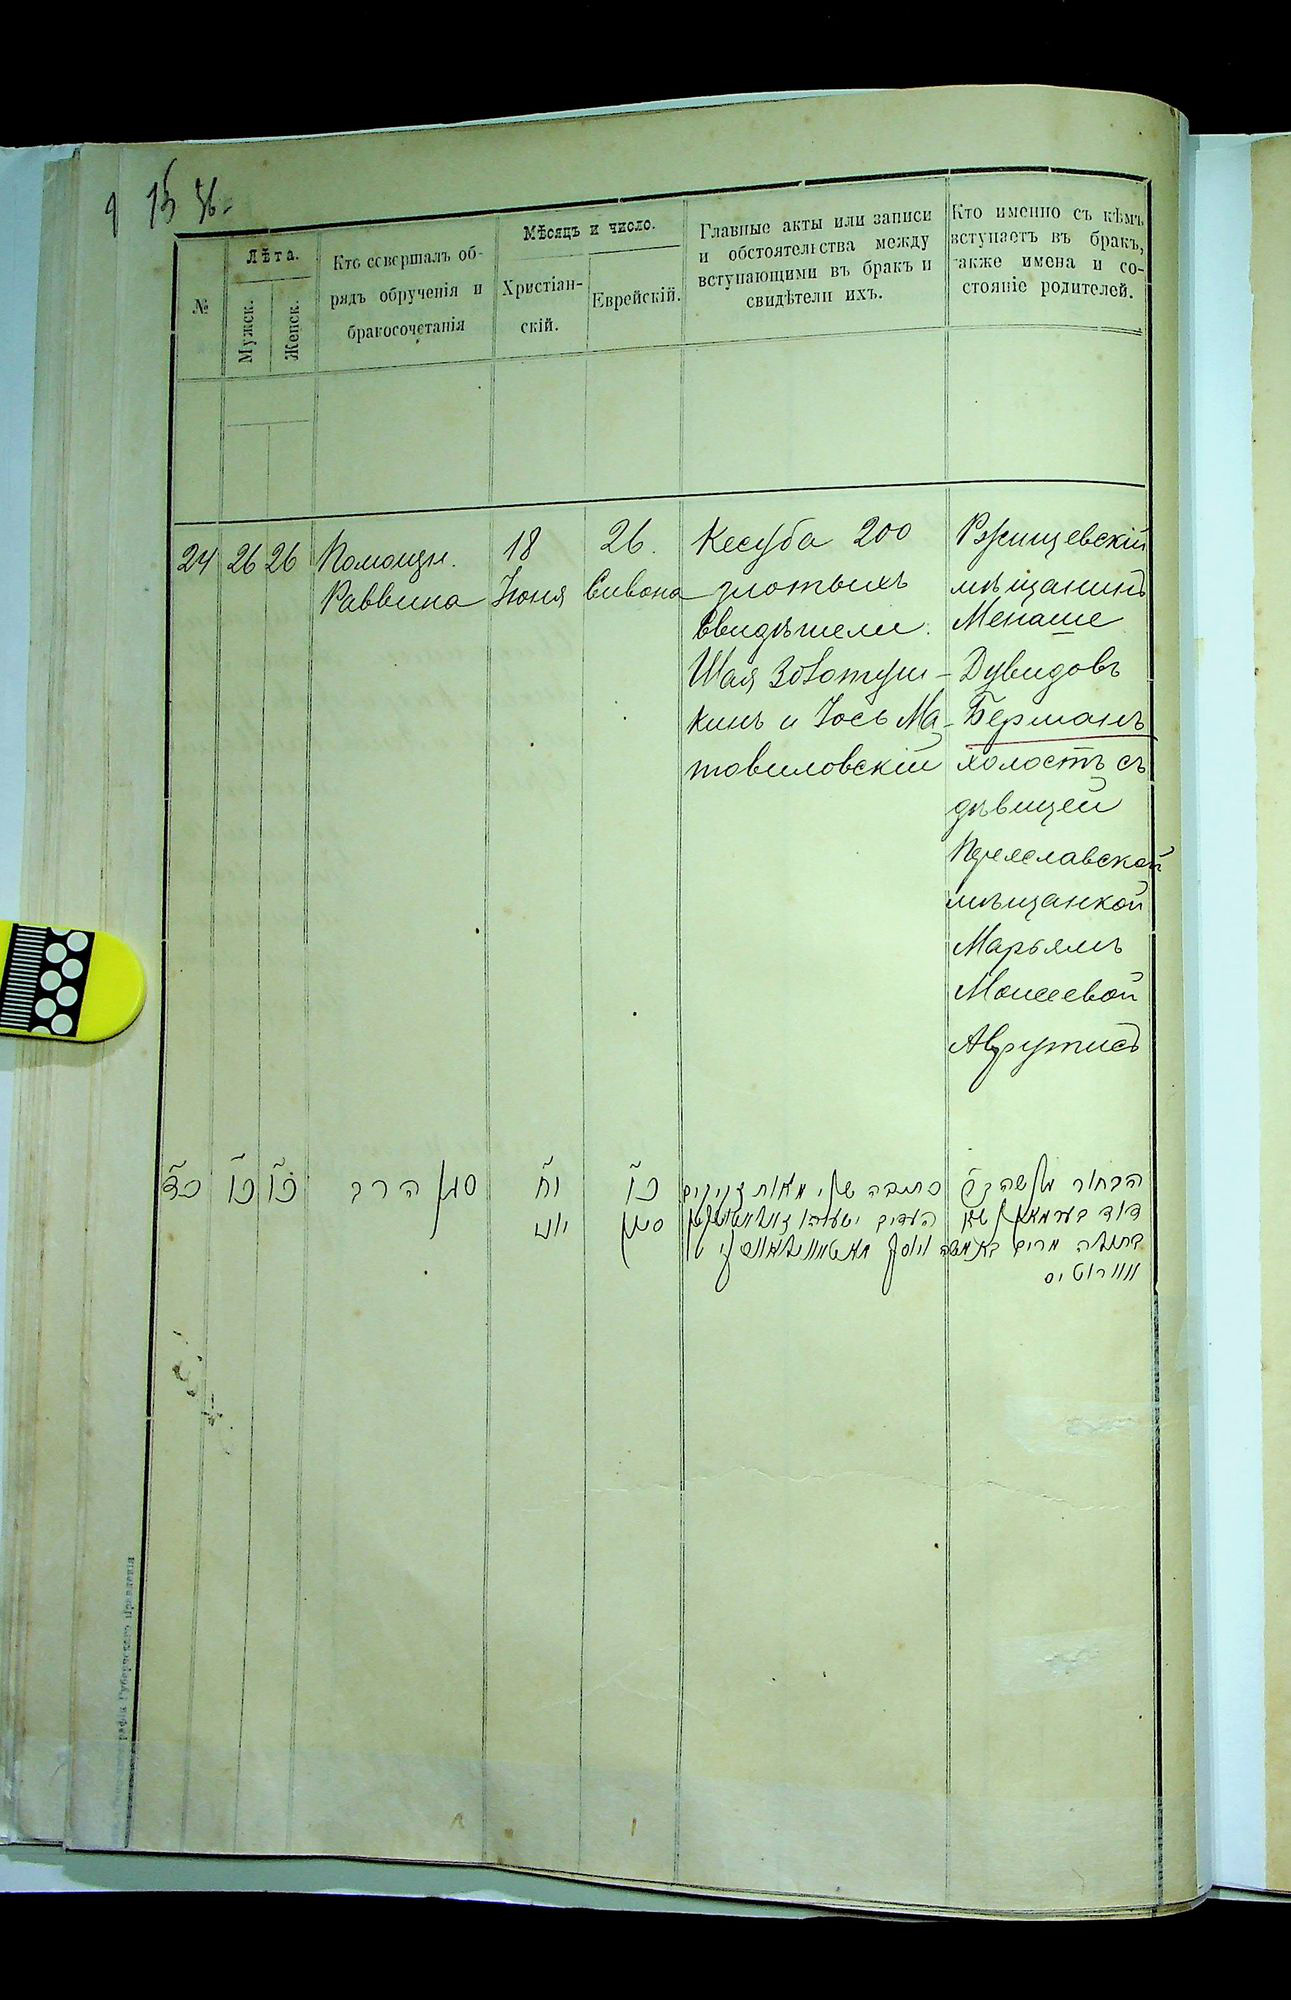 №
Лѣта.
Мужск.
Женск.
Кто совершалъ об-
рядъ обрученія и
бракосочетанія
Мѣсяцъ и число.
Христіан-
скій.
Еврейскій.
Главные акты или записи
и обстоятельства между
вступающими въ бракъ и
свидѣтели ихъ.
Кто именно съ кѣмъ
вступаетъ въ бракъ,
также имена и со-
стояніе родителей.
24
26
26
Помощн.
Раввина
18
Іюня
26.
Сивона
Кесуба 200
злотыхъ
Свидѣтели:
Шая Золотуш-
кинъ и Іось Ма-
товиловскій
Ржищевскій
мѣщанинъ
Менаше
Дувидовъ
Берманъ
холостъ съ
дѣвицей
Переяславской
мѣщанкой
Марьямъ
Моисеевой
Аврутисъ
כד
כו
כו
סגן הרב
יח
יוני
כו
סיון
כתובה שני מאות זקוקים
העדים ישעיהו
הבחור מנשה
דוד בערמאן
הבתולה מרים